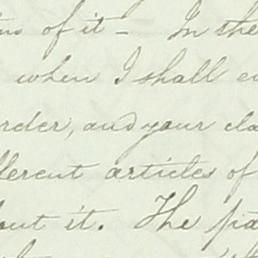 of it - In the
when I shall
order, and your
different articles of
out it. The